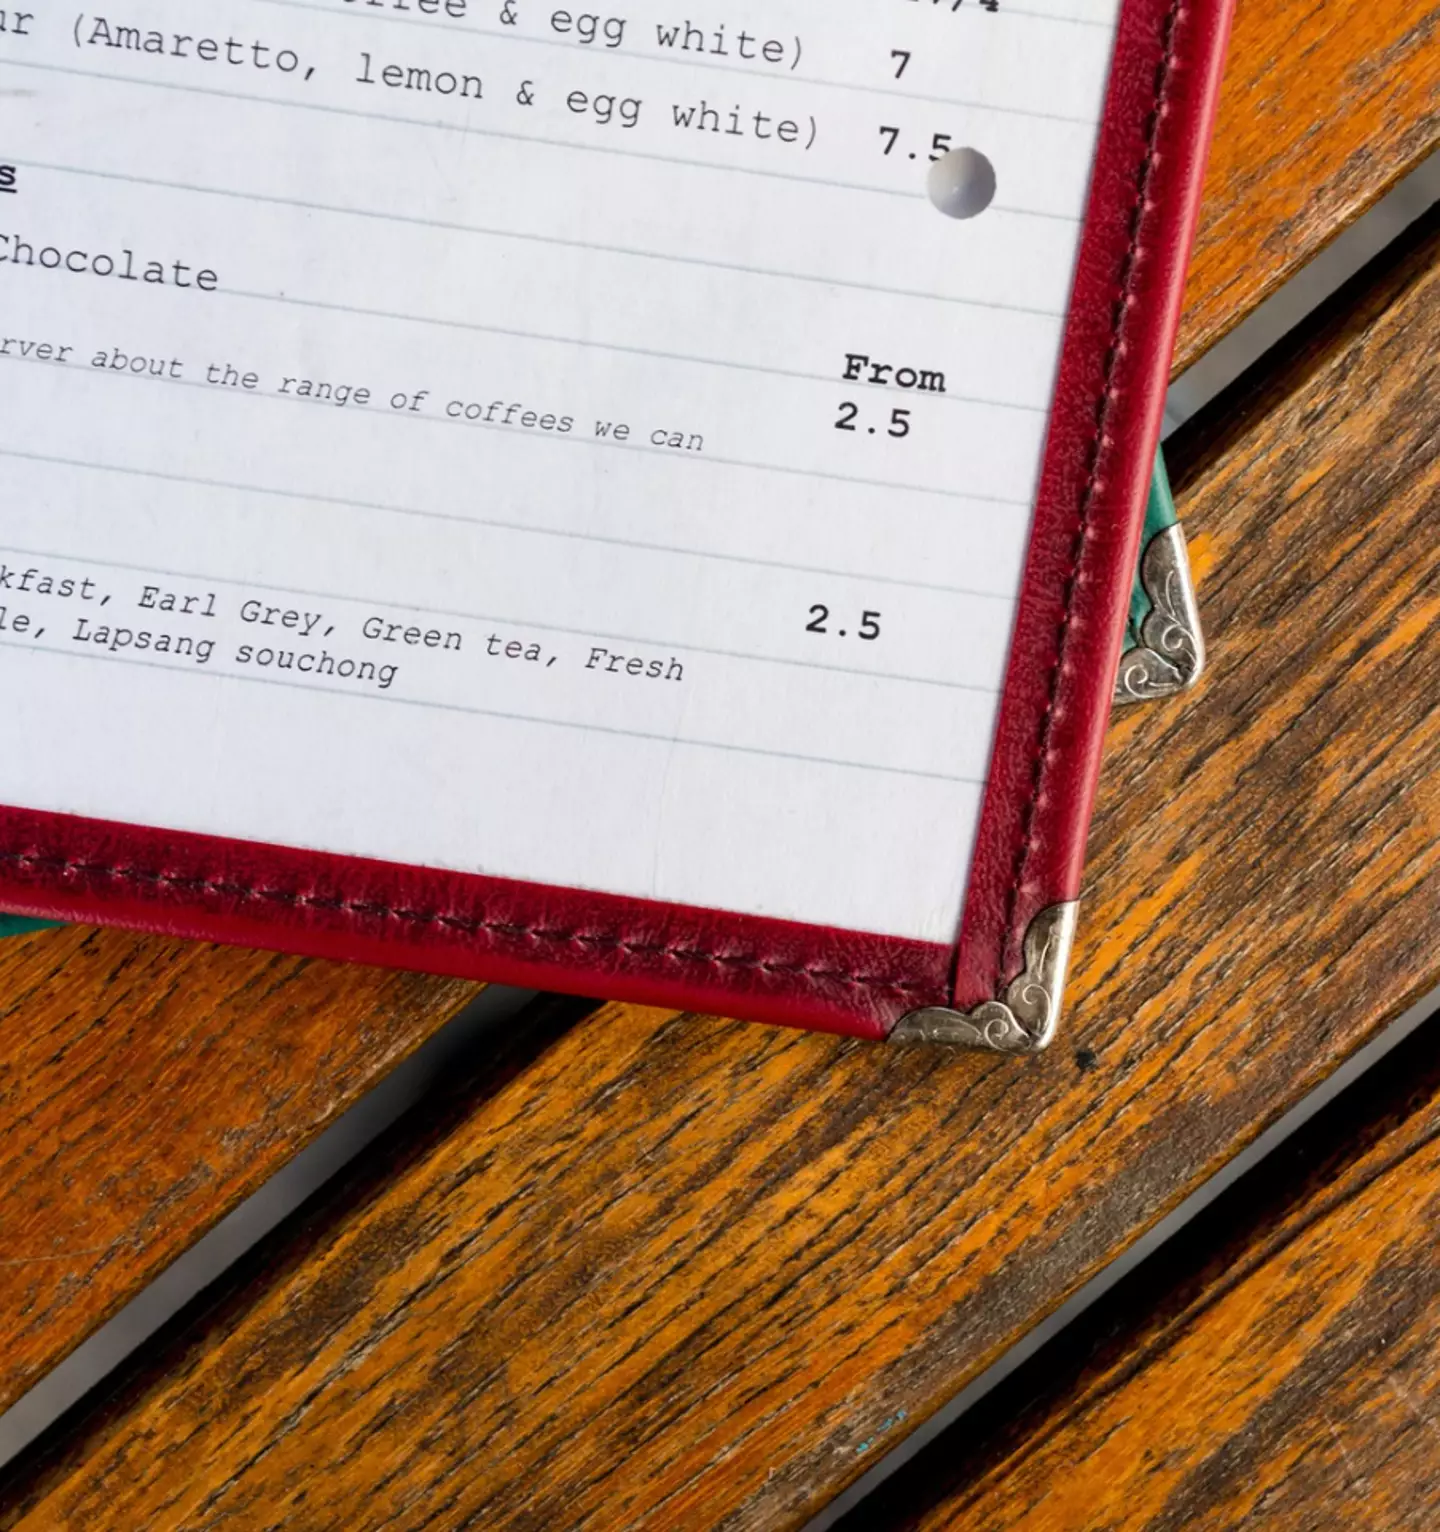 & egg white) 7
(Amaretto, lemon & egg white) 7.5
Chocolate
From
about the range of coffees we can 2.5
Earl Grey, Green tea, Fresh 2.5
Lapsang souchong